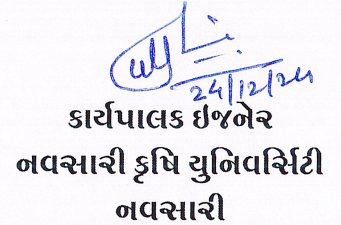 24/12/24
કાર્યપાલક ઇજનેર
નવસારી કૃષિ યુનિવર્સિટી
નવસારી